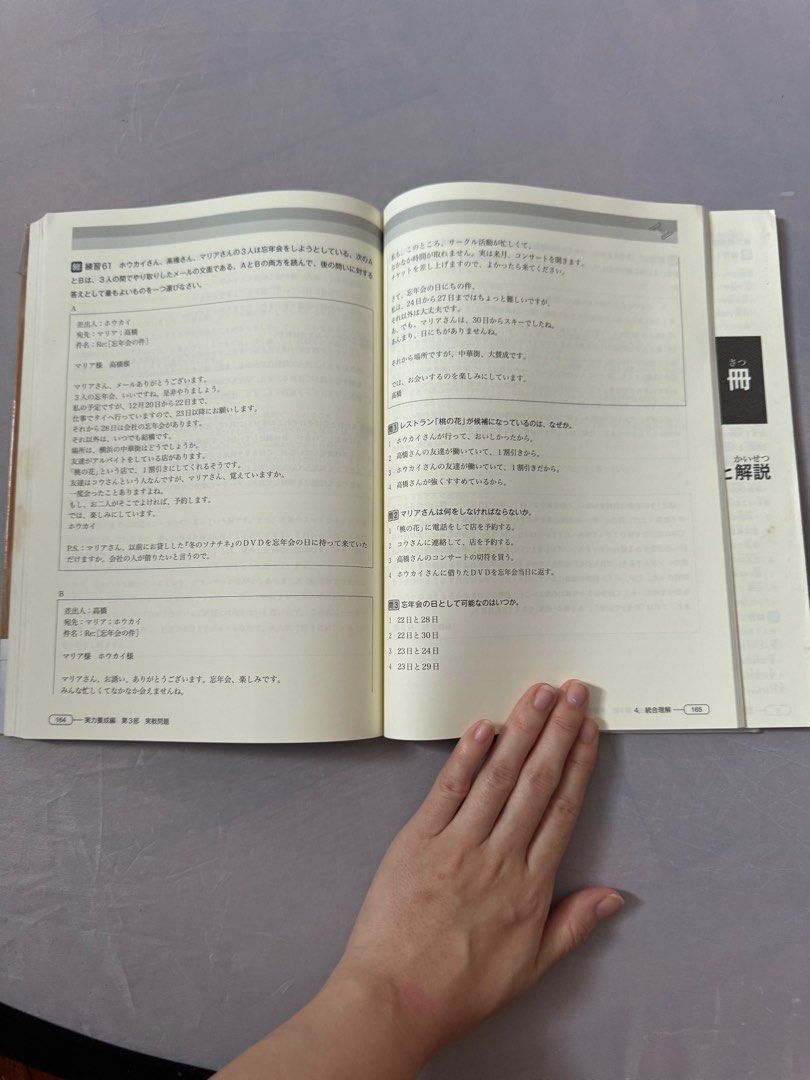 練習61 ホウカイさん、高橋さん、マリアさんの3人は忘年会をしようとしている。次のA
とBは、3人の間でやり取りしたメールの文面である。AとBの両方を読んで、後の問いに対する
答えとして最もよいものを一つ選びなさい。
A
差出人:ホウカイ
宛先:マリア;高橋
件名:Re:[忘年会の件]
マリア様 高橋様
マリアさん、メールありがとうございます。
3人の忘年会、いいですね。是非やりましょう。
私の予定ですが、12月20日から22日まで、
仕事でタイへ行っていますので、23日以降にお願いします。
それから28日は会社の忘年会があります。
それ以外は、いつでも結構です。
場所は、横浜の中華街はどうでしょうか。
友達がアルバイトをしている店があります。
「桃の花」という店で、1割引きにしてくれるそうです。
友達はコウさんという人なんですが、マリアさん、覚えていますか。
一度会ったことありますよね。
もし、お二人がそこでよければ、予約します。
では、楽しみにしています。
ホウカイ
P.S.:マリアさん、以前にお貸しした『冬のソナチネ』のDVDを忘年会の日に持って来ていた
だけますか。会社の人が借りたいと言うので。
B
差出人:高橋
宛先:マリア;ホウカイ
件名:Re:[忘年会の件]
マリア様 ホウカイ様
マリアさん、お誘い、ありがとうございます。忘年会、楽しみです。
みんな忙しくてなかなか会えませんね。
164 実力養成編 第3部 実戦問題
私も、このところ、サークル活動が忙しくて、
なかなか時間が取れません。実は来月、コンサートを開きます。
チケットを差し上げますので、よかったら来てください。
さて、忘年会の日にちの件、
私は、24日から27日まではちょっと難しいですが、
それ以外は大丈夫です。
あ、でも、マリアさんは、30日からスキーでしたね。
あんまり、日にちがありませんね。
それから場所ですが、中華街、大賛成です。
では、お会いするのを楽しみにしています。
高橋
問1 レストラン「桃の花」が候補になっているのは、なぜか。
1 ホウカイさんが行って、おいしかったから。
2 高橋さんの友達が働いていて、1割引きから。
3 ホウカイさんの友達が働いていて、1割引きだから。
4 高橋さんが強くすすめているから。
問2 マリアさんは何をしなければならないか。
1 「桃の花」に電話をして店を予約する。
2 コウさんに連絡して、店を予約する。
3 高橋さんのコンサートの切符を買う。
4 ホウカイさんに借りたDVDを忘年会当日に返す。
問3 忘年会の日として可能なのはいつか。
1 22日と28日
2 22日と30日
3 23日と24日
4 23日と29日
4. 統合理解 165
さつ
冊
かいせつ
と解説